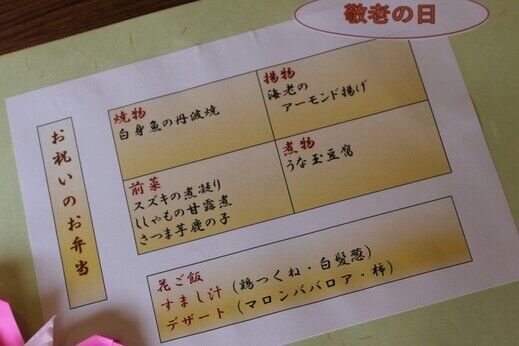 敬老の日
お祝いのお弁当
焼物
白身魚の丹波焼
揚物
海老の
アーモンド揚げ
前菜
スズキの煮凝り
ししゃもの甘露煮
さつま芋鹿の子
煮物
うな玉豆腐
花ご飯
すまし汁(鶏つくね・白髪葱)
デザート(マロンババロア・柿)